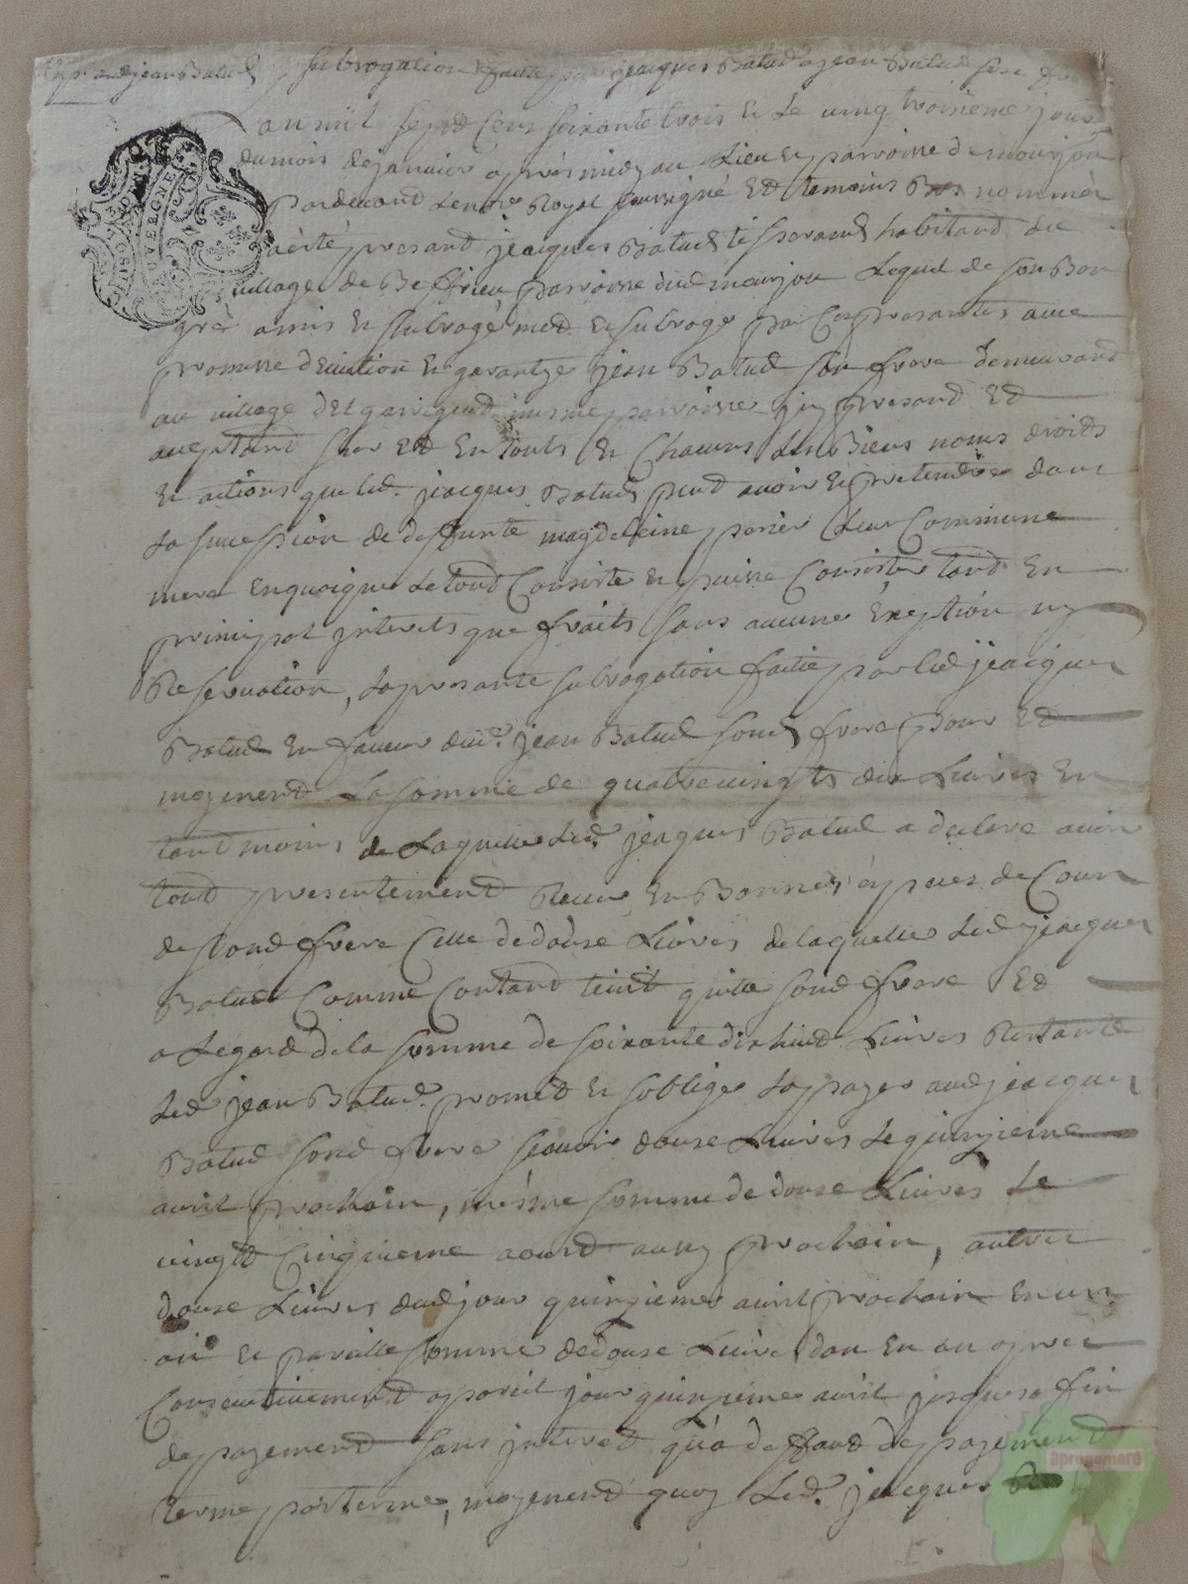 aud jean Batud subrogation faite par jeacques Batud a jean Batud son frere
an mil sept cens soixante trois et le vingt troisieme jour
du mois de janvier apres midy au Lieu et parroisse de mourjou
pardevant Le no.re Royal soussigné Et temoins Bas nommés
a èté presant jeacques Batud tisserand habitand du
village de Beffrieu parroisse dud mourjou Lequel de son Bon
gré a mis et subrogé met et subroge par Ces presantes avec
promesse deviction et garantye jean Batud son frere demeurant
au village mesme parroisse jcy presand Et
aceptant sur Et En touts et Chacuns Les Biens noms droits
et actions que led. jeacques Batud peut avoir et pretendre dans
La succession de deffunte magdeleine perier Leur Commune
mere En quoique Le tout Consiste et puisse Consister tant En
principal jnterets que fraits sans aucune Exeption ny
Reservation, La presante subrogation faitte par led jeacques
Batud En faveur dud. jean Batud sond frere pour Et
moyenent La somme de quatrevingts dix Livres En
tout moins de Laquelle Led. jeaques Batud a declare avoir
tout presentement Receu En Bonnes espeses de Cour
de sond frere Celle de douse Livres de laquelle Led jeacques
Batud Comme Contant tient quitte sond frere Et
a Legard de la somme de soixante dix huit Livres Restante
Led jean Batud. promet et soblige La payer aud jeacques
Batud sond frere scavoir douse Livres Le quinzieme
avril prochain, mesme somme de douse Livres Le
vingt Cinquieme aoust aussy prochain, autres
douse Livres dud jour quinzieme avril prochain En un
an et pareille somme de douse Livres dan En an apres
Consecutivement a pareil jour quinzieme avril jusques a fin
de payement sans jnteret qu'a deffaut de payement
terme par terme, moyenent quoy Led. jeacques
apregemare